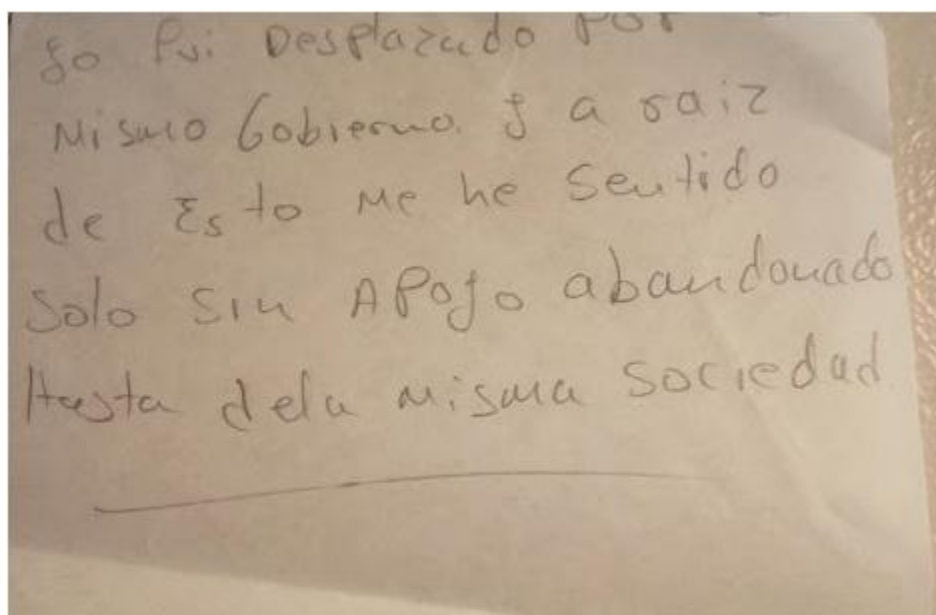 go fui Desplazado por
Mismo Gobierno. y a raiz
de Esto Me he Sentido
Solo Sin APoyo abandonado
Hasta dela Misma sociedad